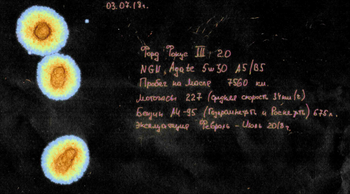 03.07.18г.
Форд Фокус III 2.0
NGN, Agate 5w30 A5/B5
Пробег на масле 7560 км.
Моточасы 227 (средняя скорость 34км/ч.)
Бензин АИ-95 (Газпромнефть и Роснефть) 675л.
Эксплуатация Февраль - Июль 2018г.